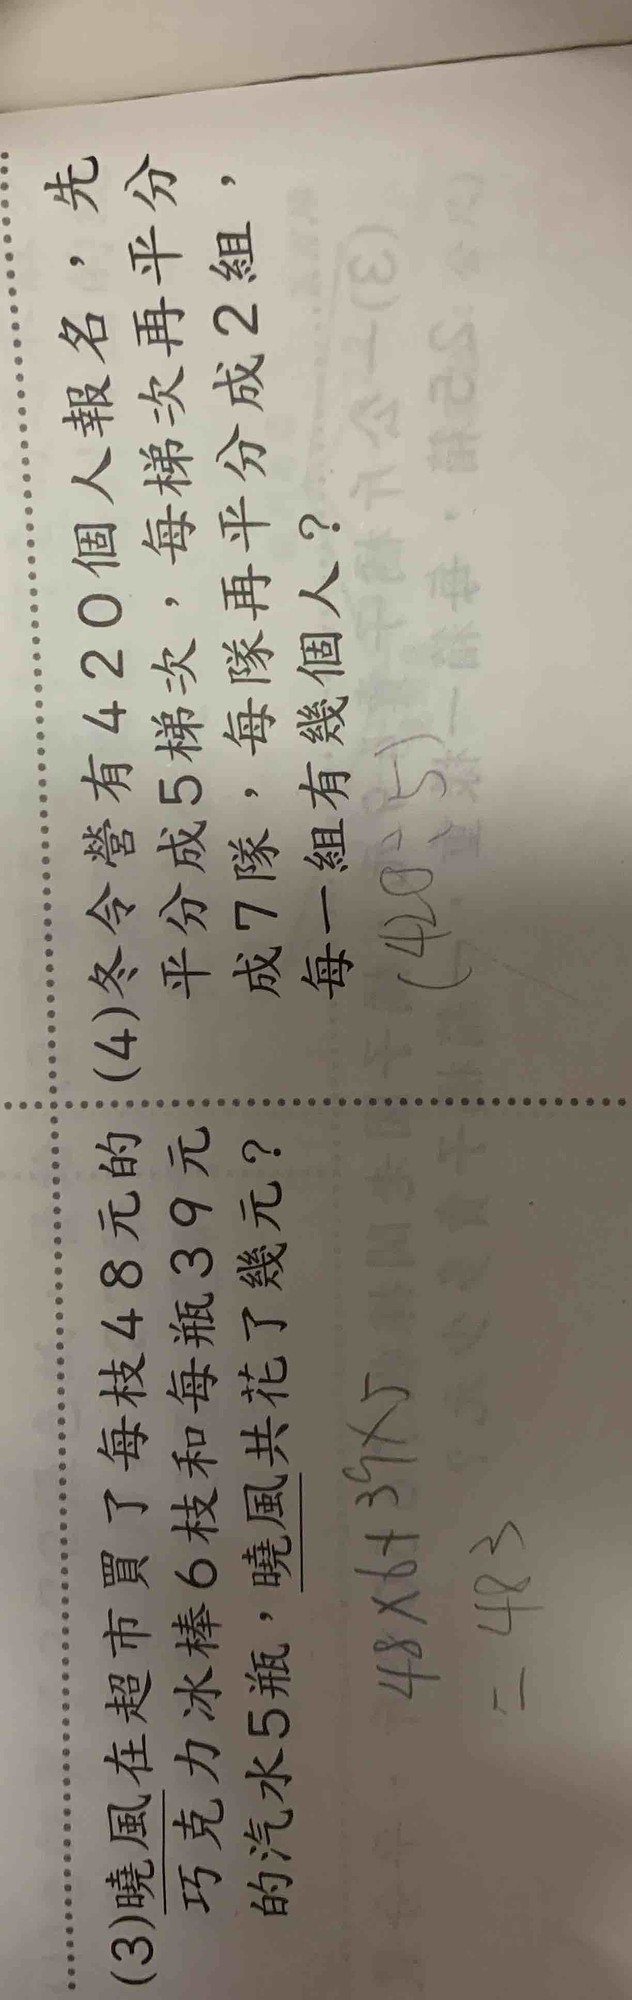 (3)曉風在超市買了每枝48元的
巧克力冰棒6枝和每瓶39元
的汽水5瓶，曉風共花了幾元？
48×6+39×5
=483
(4)冬令營有420個人報名，先
平分成5梯次，每梯次再平分
成7隊，每隊再平分成2組，
每一組有幾個人？
(420÷5)